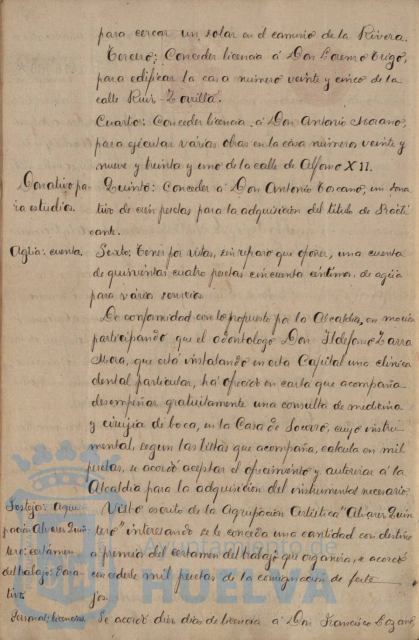 para cercar un solar en el camino de la Rivera.
Tercero: Conceder licencia á Don Lorenzo Trigo,
para edificar la casa número veinte y cinco de la
calle Ruiz-Zorrilla.
Cuarto: Conceder licencia á Don Antonio Morano,
para ejecutar varias obras en la casa números veinte y
nueve y treinta y uno de la calle de Alfonso XII.
Donativo pa-
ra estudios.
Quinto: Conceder á Don Antonio Toscano, un dona-
tivo de cien pesetas para la adquisición del título de Practi-
cante.
Agua: cuenta.
Sexto: Tener por vistas, sin reparo que oponer, una cuenta
de quinientas cuatro pesetas cincuenta céntimos, de agua
para varios servicios.
De conformidad con lo propuesto por la Alcaldía, en moción
participando que el odontólogo Don Ildefonso Zarra
Mora, que está instalando en esta Capital una clínica
dental particular, há ofrecido en carta que acompaña
desempeñar gratuitamente una consulta de medicina
y cirujía de boca, en la Casa de Socorro, cuyo instru-
mental, segun las listas que acompaña, calcula en mil
pesetas, se acordó aceptar el ofrecimiento y autorizar á la
Alcaldía para la adquisición del instrumental necesario.
Festejos: Agru-
pación Alvarez Quin-
tero: certamen
del trabajo: Dona-
tivo.
Visto escrito de la Agrupación Artística "Alvarez Quin-
tero" interesando se le conceda una cantidad con destino
a premio del certamen del trabajo que organiza, se acordó
concederle mil pesetas de la consignación de feste-
jos.
Personal: licencia.
Se acordó dar diez días de licencia á Don Francisco Lozano,
Ayuntamiento de
HUELVA